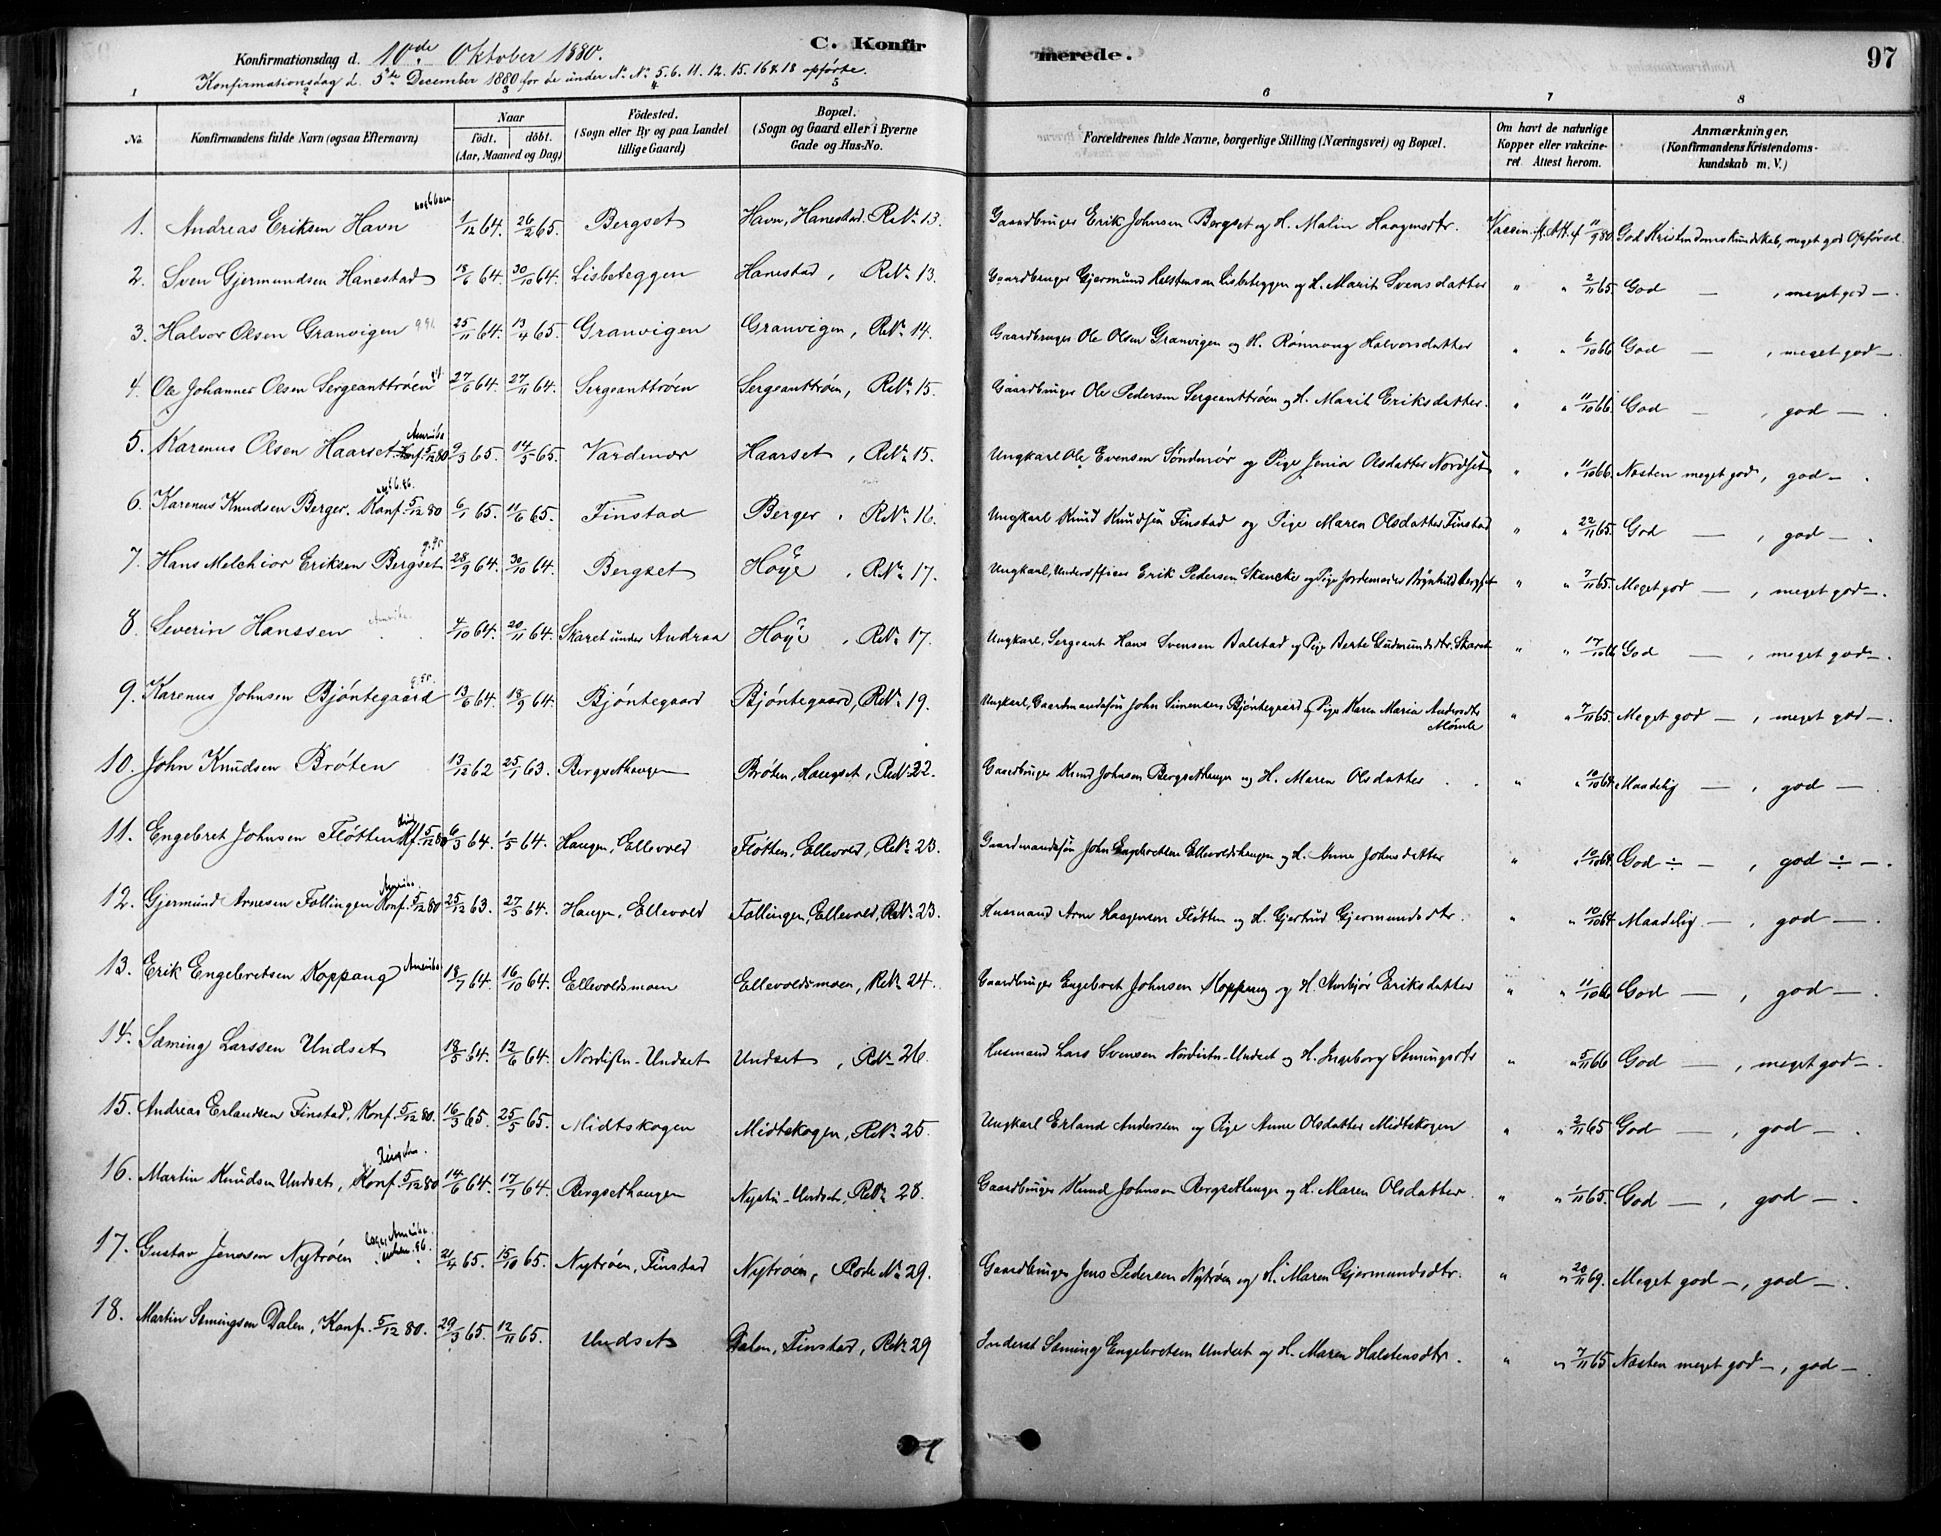 Konfirmationsdag d. 10de Oktober 1880. C. Konfirmerede. 97
Konfirmationsdag d. 5te December 1880 for de under No. No. 5. 6. 11. 12. 15. 16 & 18 opførte.
1 2 3 4 5 6 7 8
No. Konfirmandens fulde Navn (ogsaa Efternavn) Naar født. døbt. (Aar, Maaned og Dag) Fødested. (Sogn eller By og paa Landet tillige Gaard) Bopæl. (Sogn og Gaard eller i Byerne Gade og Hus-No. Forældrenes fulde Navne, borgerlige Stilling (Næringsvei) og Bopæl. Om havt de naturlige Kopper eller vakcineret. Attest herom. Anmærkninger. (Konfirmandens Kristendomskundskab m. V.)
1. Andreas Eriksen Havn 1/12 64. 26/2 65. Bergset Havn, Hanestad. R.No. 13. Gaardbruger Erik Johnsen Bergset og H. Malin Haagensdtr. Vaccin. 11/9 80. God Kristendomskundskab, meget god Opførsel.
2. Sven Gjermundsen Hanestad 18/6 64. 30/10 64. Lisbeteggen Hanestad, R.No. 13. Gaardbruger Gjermund Halstensen Lisbeteggen og H. Marit Svensdatter " " 2/11 65. God — , meget god —.
3. Halvor Olsen Granvigen 25/11 64. 13/4 65. Granvigen Granvigen, R.No. 14. Gaardbruger Ole Olsen Granvigen og H. Rønnaug Halvorsdatter " " 6/10 66 God — , meget god —.
4. Ole Johannes Olsen Sergeanttrøen 27/6 64. 27/11 64. Sergeanttrøen Sergeanttrøen, R.No. 15. Gaardbruger Ole Pedersen Sergeanttrøen og H. Marit Eriksdatter. " " 11/10 66. God — , god — .
5. Karenus Olsen Haarset. Amerika Konf. 5/12 80 9/3 65. 14/5 65. Vardemoe Haarset, R.No. 15. Ungkarl Ole Evensen Søndmør og Pige Jenia Olsdatter Nordset " " 11/10 66. Næsten meget god, god — .
6. Karenus Knudsen Berger. Konf. 5/12 80 6/1 65. 11/6 65. Finstad Berger, R.No. 16. Ungkarl Knud Knudsen Finstad og Pige Maren Olsdatter Finstad " " 22/11 65. God — , god — .
7. Hans Melchior Eriksen Bergset 28/9 64. 30/10 64. Bergset Høye, R.No. 17. Ungkarl, Underofficer Erik Pedersen Skancke og Pige Jordemoder Brynhild Bergset " " 7/11 65. Meget god — , meget god —.
8. Severin Hanssen Amerika 4/10 64. 20/11 64. Skaret under Andraa Høye, R.No. 17. Ungkarl, Sergeant Hans Svensen Balstad og Pige Berte Gudmundsdtr. Skaret " " 17/10 66 God — , meget god —.
9. Karenus Johnsen Bjøntegaard 13/6 64. 18/9 64. Bjøntegaard Bjøntegaard, R.No. 19. Ungkarl, Gaardmandssøn John Simensen Bjøntegaard og Pige Karen Maria Andersdtr. Mømle " " 7/11 65. Meget god — , meget god —.
10. John Knudsen Brøten 13/12 62 25/1 63. Bergsethaugen Brøten, Haugset, R.No. 22. Gaardbruger Knud Johnsen Bergsethaugen og H. Maren Olsdatter. " " 10/10 64 Maadelig — , god — .
11. Engebret Johnsen Fløtten Kf. 5/12 80 6/3 64. 1/5 64. Haugen, Ellevold Fløtten, Ellevold, R.No. 23. Gaardmandssøn John Engebretsen Ellevoldshaugen og H. Anne Johnsdatter " " 10/10 64 God ÷ — , god ÷ — .
12. Gjermund Arnesen Follingen Amerika Konf. 5/12 80 25/12 63. 27/5 64. Haugen, Ellevold Follingen, Ellevold, R.No. 23. Husmand Arne Haagensen Fløtten og H. Gjertrud Gjermundsdtr. " " 10/10 64 Maadelig — , god — .
13. Erik Engebretsen Koppang Amerika 18/7 64. 16/10 64. Ellevoldsmoen Ellevoldsmoen, R.No. 24. Gaardbruger Engebret Johnsen Koppang og H. Anbjør Eriksdatter " " 11/10 66 God — , god — .
14. Sæming Larssen Undset 18/5 64. 12/6 64. Nordistu-Undset Undset, R.No. 26. Husmand Lars Svensen Nordistu-Undset og H. Ingeborg Sæmingsdtr " " 5/11 66 God — , meget god —.
15. Andreas Erlandsen Finstad, Konf. 5/12 80. 16/3 65. 25/5 65. Midtskogen Midtskogen, R.No. 25. Ungkarl Erland Anderssen og Pige Anne Olsdatter Midtskogen " " 2/11 65 God — , god — .
16. Martin Knudsen Undset, Konf. 5/12 80 14/6 64. 17/7 64. Bergsethaugen Nystu-Undset, R.No. 28. Gaardbruger Knud Johnsen Bergsethaugen og H. Maren Olsdatter. " " 1/11 65. God — , god — .
17. Gustav Jenssen Nytrøen 21/4 65. 15/10 65. Nytrøen, Finstad Nytrøen, Rode No. 29. Gaardbruger Jens Pedersen Nytrøen og H. Maren Gjermundsdtr. " " 20/11 69. Meget god —, god — .
18. Martin Sæmingsen Dalen, Konf. 5/12 80. 29/3 65. 12/11 65. Undset Dalen, Finstad, R.No. 29 Inderst Sæming Engebretsen Undset og H. Maren Halstensdtr. " " 7/11 65 Næsten meget god —, god —